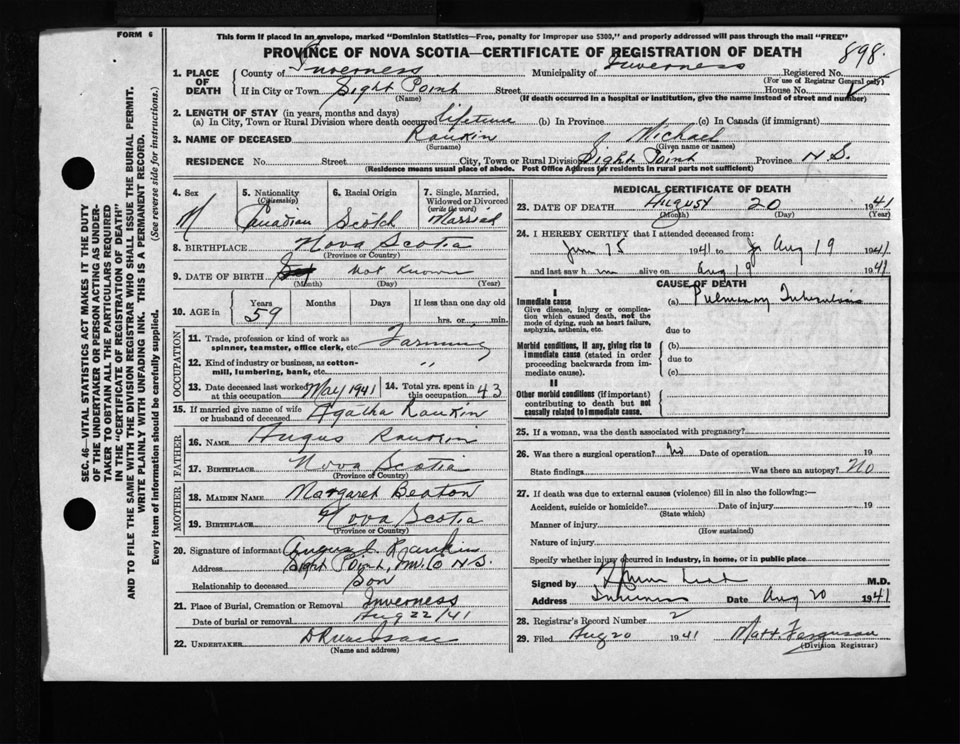 FORM 6
This form if placed in an envelope, marked "Dominion Statistics—Free, penalty for improper use $300," and properly addressed will pass through the mail "FREE"
PROVINCE OF NOVA SCOTIA—CERTIFICATE OF REGISTRATION OF DEATH
898.
1. PLACE OF DEATH County of Inverness Municipality of Inverness Registered No.
(For use of Registrar General only)
If in City or Town Sight Point Street House No.
(Name) (If death occurred in a hospital or institution, give the name instead of street and number)
2. LENGTH OF STAY (in years, months and days)
(a) In City, Town or Rural Division where death occurred lifetime (b) In Province (c) In Canada (if immigrant)
3. NAME OF DECEASED Rankin Michael
(Surname) (Given name or names)
RESIDENCE No. Street City, Town or Rural Division Sight Point Province N.S.
(Residence means usual place of abode. Post Office Address for residents in rural parts not sufficient)
4. Sex 5. Nationality (Citizenship) 6. Racial Origin 7. Single, Married, Widowed or Divorced (write the word)
M Canadian Scotch Married
8. BIRTHPLACE Nova Scotia
(Province or Country)
9. DATE OF BIRTH Not Known
(Month) (Day) (Year)
10. AGE in Years Months Days If less than one day old
59 hrs. or min.
OCCUPATION
11. Trade, profession or kind of work as spinner, teamster, office clerk, etc. Farming
12. Kind of industry or business, as cotton-mill, lumbering, bank, etc. "
13. Date deceased last worked at this occupation May 1941 14. Total yrs. spent in this occupation 43
15. If married give name of wife or husband of deceased Agatha Rankin
FATHER
16. NAME Angus Rankin
17. BIRTHPLACE Nova Scotia
(Province or Country)
MOTHER
18. MAIDEN NAME Margaret Beaton
19. BIRTHPLACE Nova Scotia
(Province or Country)
20. Signature of informant Angus J. Rankin
Address Sight Point, Inv. Co N.S.
Relationship to deceased Son
21. Place of Burial, Cremation or Removal Inverness
Date of burial or removal Aug 22/41
22. UNDERTAKER
(Name and address)
MEDICAL CERTIFICATE OF DEATH
23. DATE OF DEATH August 20 1941
(Month) (Day) (Year)
24. I HEREBY CERTIFY that I attended deceased from:
June 15 1941 to Aug 19 1941
and last saw him alive on Aug 19 1941
CAUSE OF DEATH
I
Immediate cause (a) Pulmonary Tuberculosis
Give disease, injury or complication which caused death, not the mode of dying, such as heart failure, asphyxia, asthenia, etc.
due to
Morbid conditions, if any, giving rise to immediate cause (stated in order proceeding backwards from immediate cause). (b)
due to
(c)
II
Other morbid conditions (if important) contributing to death but not causally related to immediate cause.
25. If a woman, was the death associated with pregnancy?
26. Was there a surgical operation? No Date of operation 19
State findings Was there an autopsy? No
27. If death was due to external causes (violence) fill in also the following:—
Accident, suicide or homicide? Date of injury 19
(State which)
Manner of injury
(How sustained)
Nature of injury
Specify whether injury occurred in industry, in home, or in public place
Signed by M.D.
Address Inverness Date Aug 20 1941
28. Registrar's Record Number 2
29. Filed Aug 20 1941 Matt. Ferguson
(Division Registrar)
SEC. 46—VITAL STATISTICS ACT MAKES IT THE DUTY
OF THE UNDERTAKER OR PERSON ACTING AS UNDERTAKER TO OBTAIN ALL THE PARTICULARS REQUIRED
IN THE "CERTIFICATE OF REGISTRATION OF DEATH"
AND TO FILE THE SAME WITH THE DIVISION REGISTRAR WHO SHALL ISSUE THE BURIAL PERMIT.
WRITE PLAINLY WITH UNFADING INK. THIS IS A PERMANENT RECORD.
Every item of information should be carefully supplied. (See reverse side for instructions.)